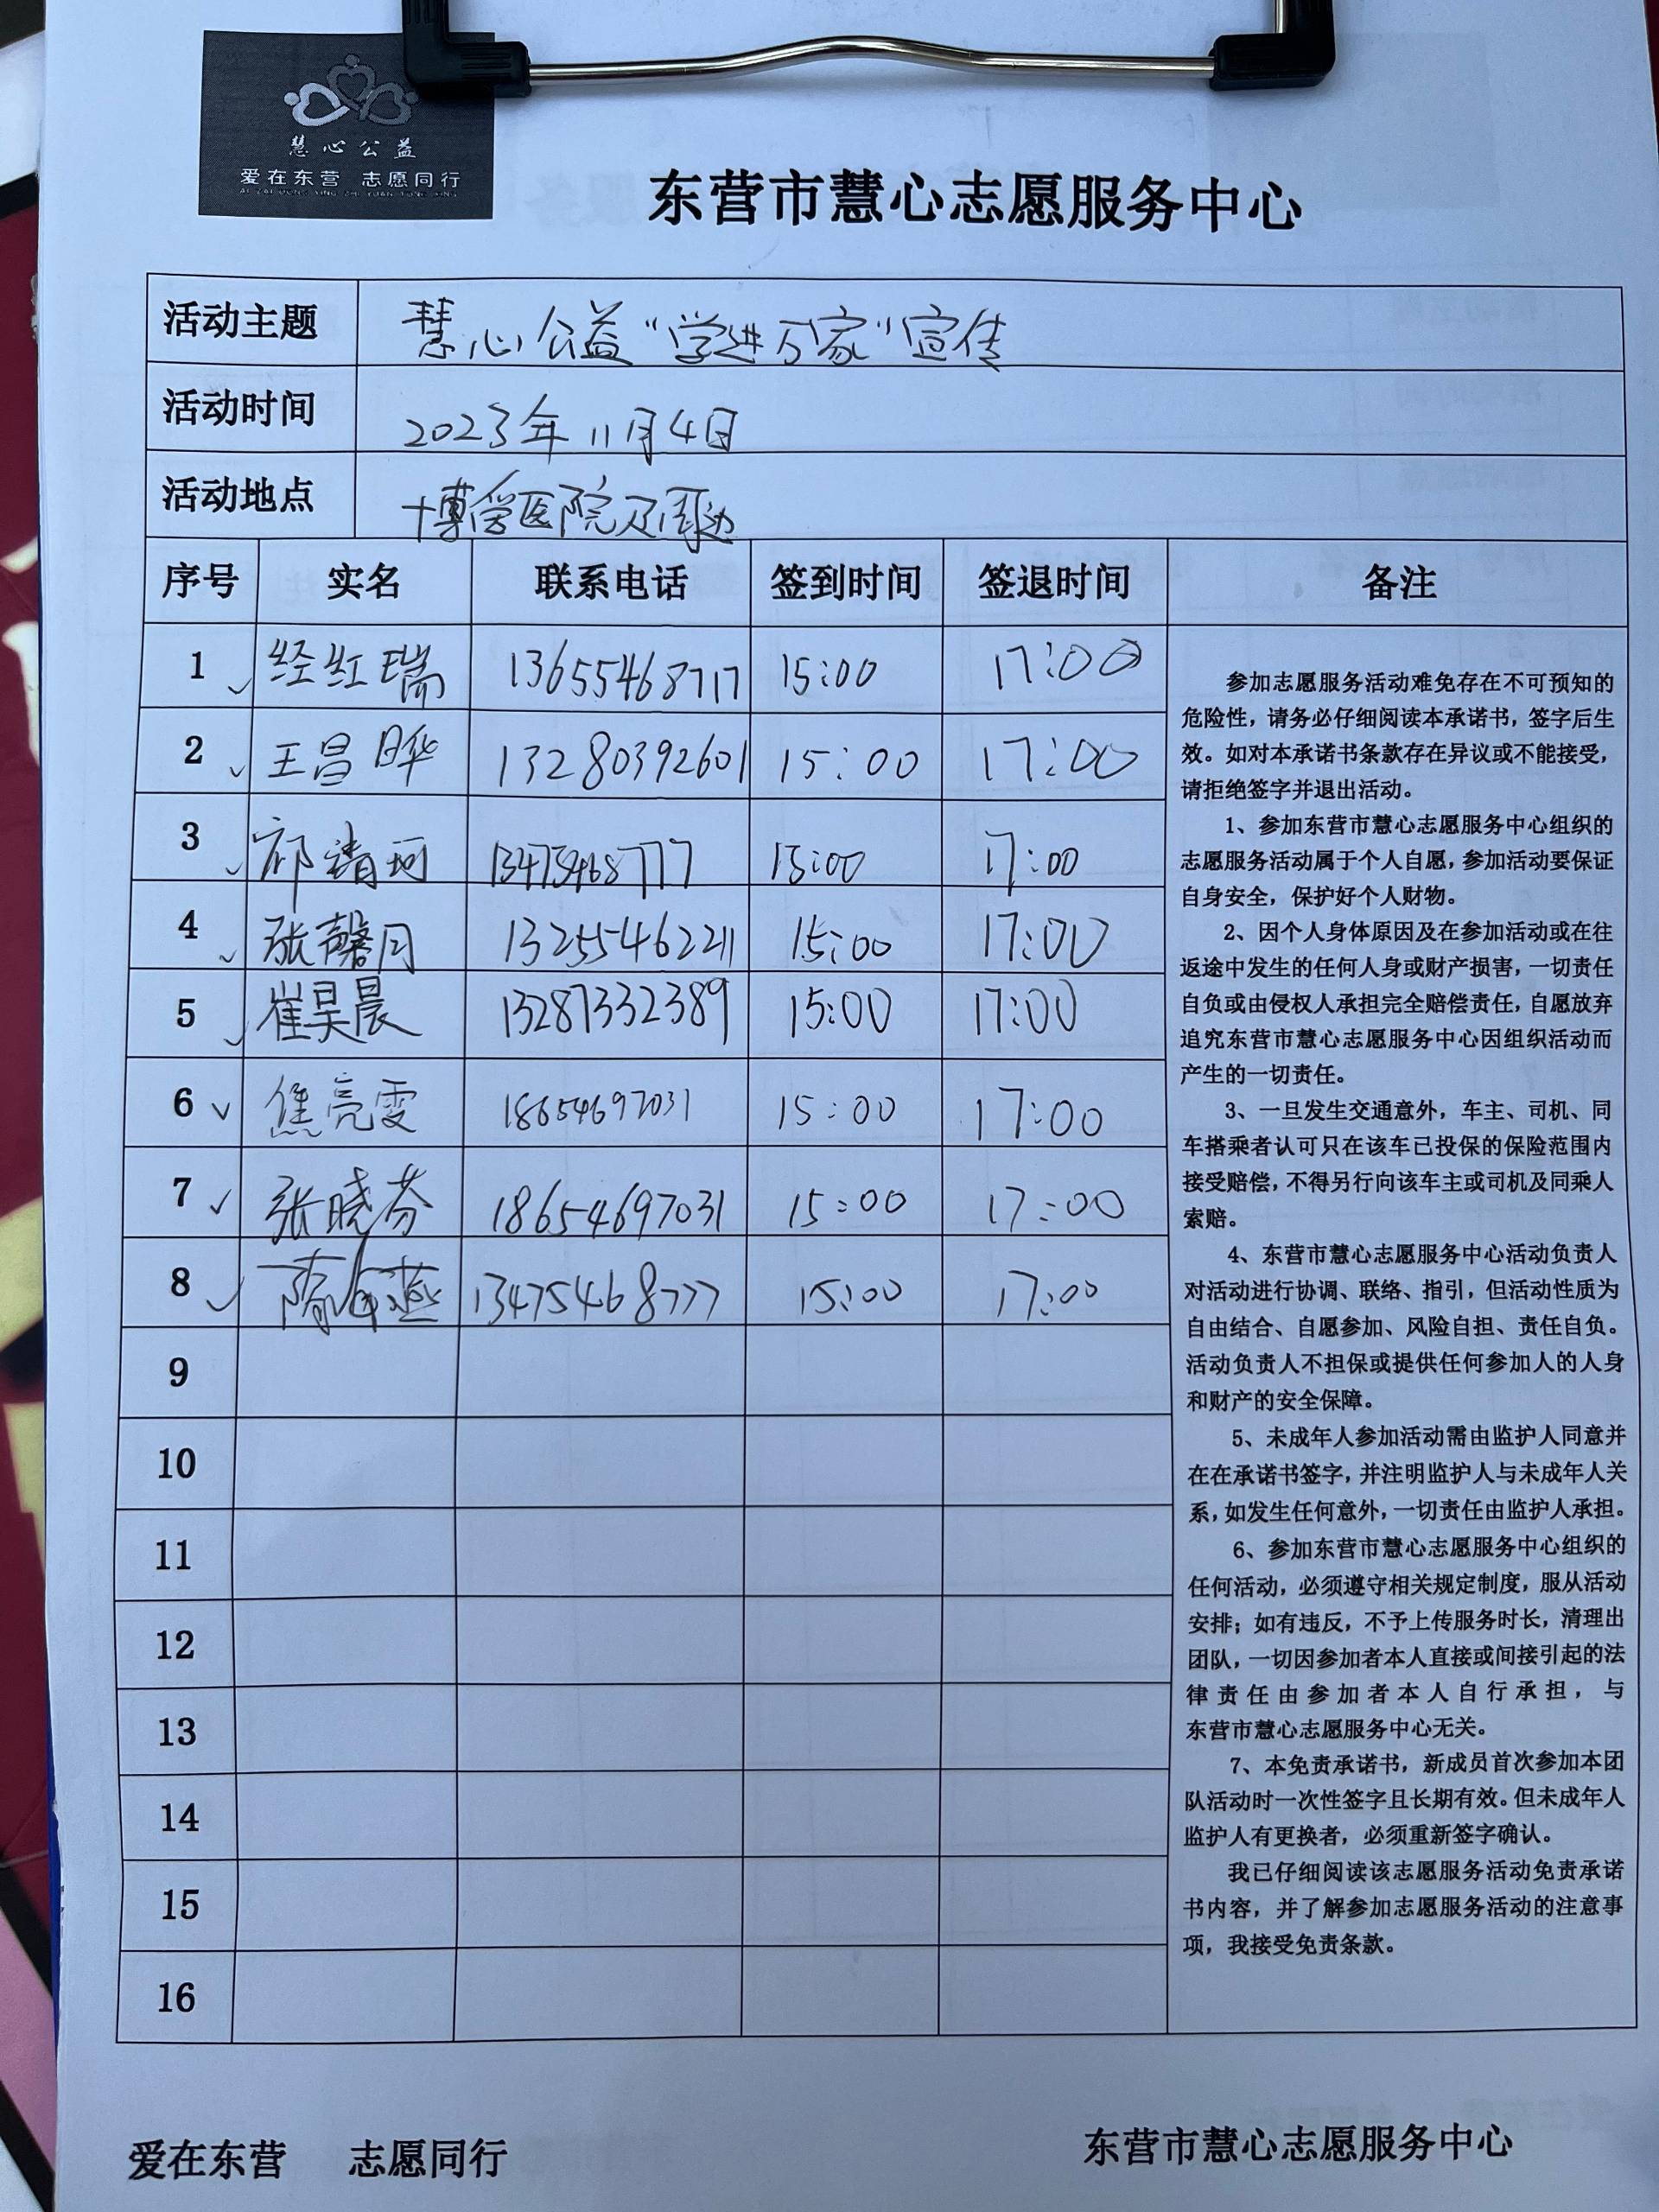 慧心公益
爱在东营 志愿同行
东营市慧心志愿服务中心
活动主题 慧心公益“学进万家”宣传
活动时间 2023年11月4日
活动地点 博学医院及周边
序号 实名 联系电话 签到时间 签退时间 备注
1 经红瑞 13655468717 15:00 17:00
2 王昌晔 13280392601 15:00 17:00
3 祁靖珂 13475468777 15:00 17:00
4 张馨月 13255462211 15:00 17:00
5 崔昊晨 13287332389 15:00 17:00
6 焦亮雯 18654697031 15:00 17:00
7 张晓芬 18654697031 15:00 17:00
8 隋 燕 13475468777 15:00 17:00
9
10
11
12
13
14
15
16
参加志愿服务活动难免存在不可预知的
危险性，请务必仔细阅读本承诺书，签字后生
效。如对本承诺书条款存在异议或不能接受，
请拒绝签字并退出活动。
1、参加东营市慧心志愿服务中心组织的
志愿服务活动属于个人自愿，参加活动要保证
自身安全，保护好个人财物。
2、因个人身体原因及在参加活动或在往
返途中发生的任何人身或财产损害，一切责任
自负或由侵权人承担完全赔偿责任，自愿放弃
追究东营市慧心志愿服务中心因组织活动而
产生的一切责任。
3、一旦发生交通意外，车主、司机、同
车搭乘者认可只在该车已投保的保险范围内
接受赔偿，不得另行向该车主或司机及同乘人
索赔。
4、东营市慧心志愿服务中心活动负责人
对活动进行协调、联络、指引，但活动性质为
自由结合、自愿参加、风险自担、责任自负。
活动负责人不担保或提供任何参加人的人身
和财产的安全保障。
5、未成年人参加活动需由监护人同意并
在在承诺书签字，并注明监护人与未成年人关
系，如发生任何意外，一切责任由监护人承担。
6、参加东营市慧心志愿服务中心组织的
任何活动，必须遵守相关规定制度，服从活动
安排；如有违反，不予上传服务时长，清理出
团队，一切因参加者本人直接或间接引起的法
律责任由参加者本人自行承担，与
东营市慧心志愿服务中心无关。
7、本免责承诺书，新成员首次参加本团
队活动时一次性签字且长期有效。但未成年人
监护人有更换者，必须重新签字确认。
我已仔细阅读该志愿服务活动免责承诺
书内容，并了解参加志愿服务活动的注意事
项，我接受免责条款。
爱在东营 志愿同行 东营市慧心志愿服务中心